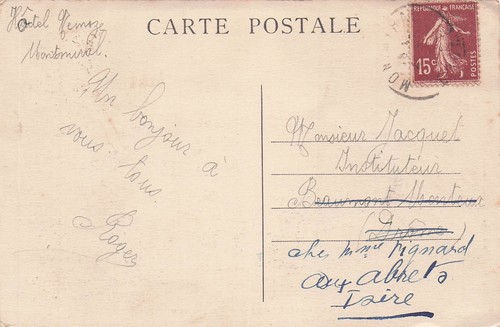 CARTE POSTALE
Hôtel
Montmirail.
Un bonjour à
vous tous
Roger
RÉPUBLIQUE FRANÇAISE
15c
POSTES
MON
Monsieur Jacquet
Instituteur
Beaumont Monteux
(Drôme)
chez Mme Pignard
aux Abrets
Isère